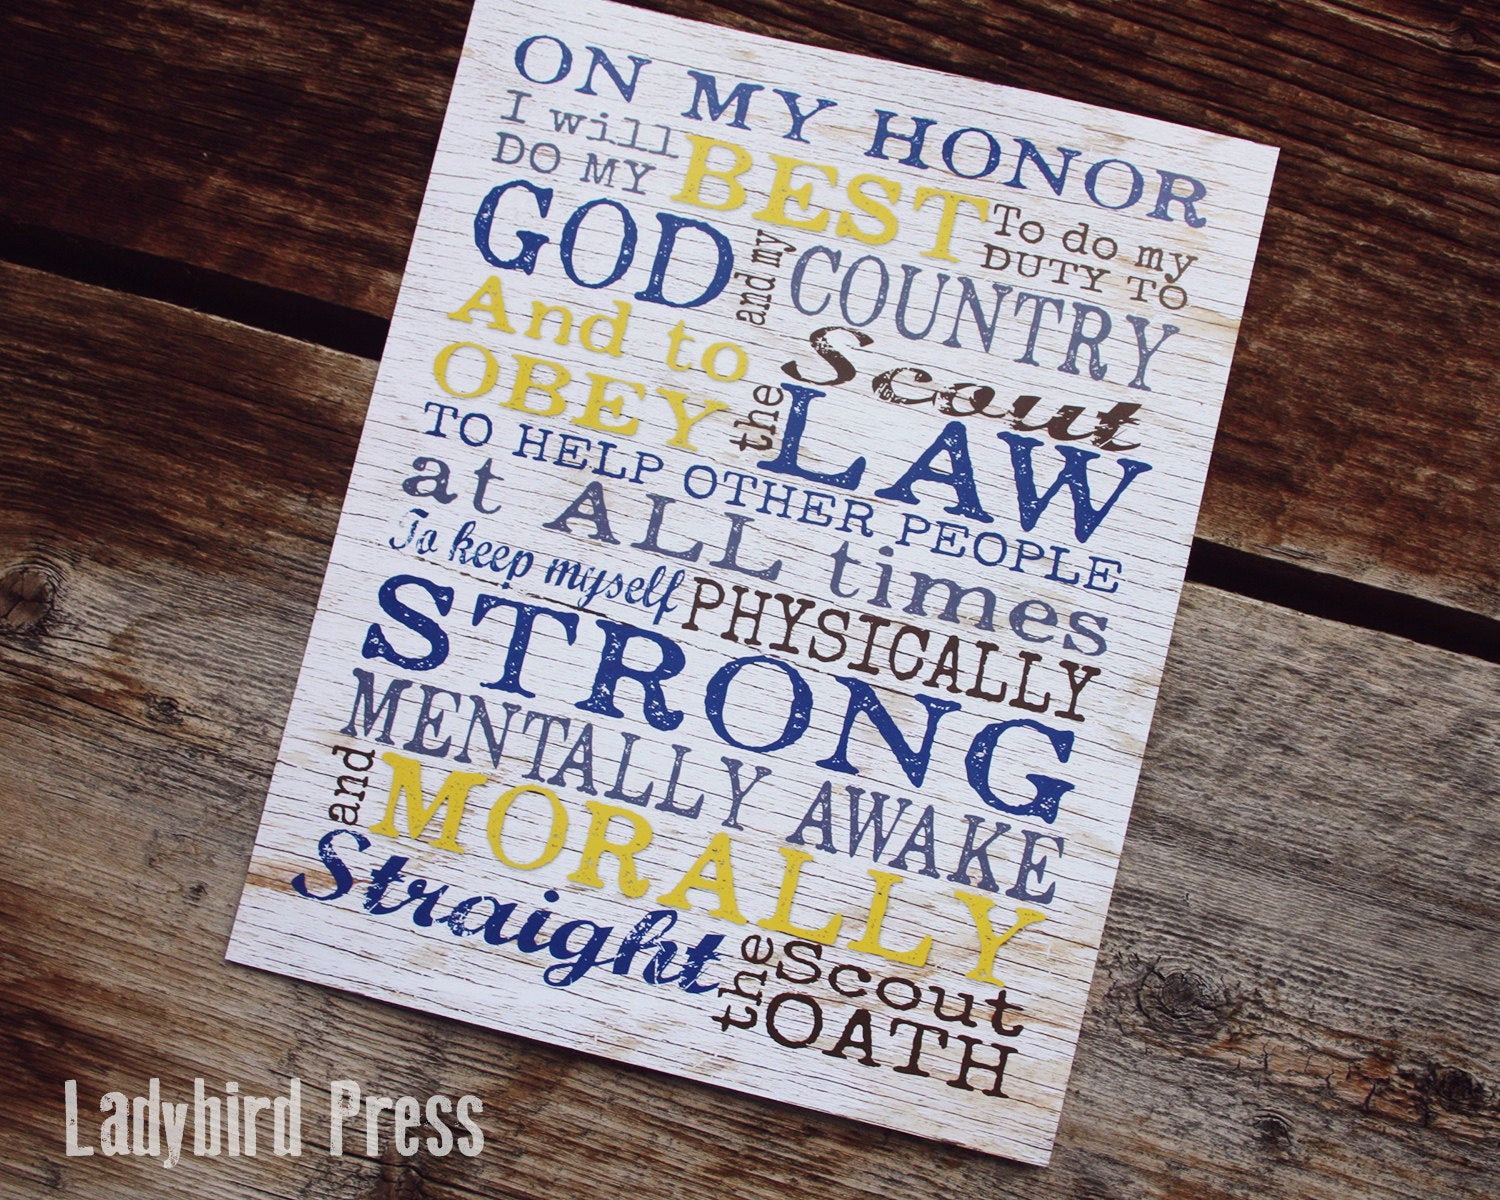 ON MY HONOR
I will
DO MY
BEST
To do my
DUTY TO
GOD
and my
COUNTRY
And to
OBEY
the
Scout
LAW
TO HELP OTHER PEOPLE
at ALL times
To keep myself PHYSICALLY
STRONG
MENTALLY AWAKE
and
MORALLY
Straight
the
Scout
OATH
Ladybird Press